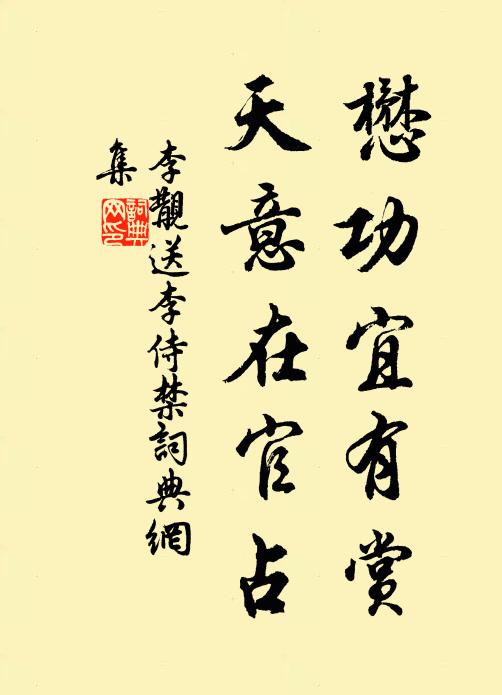 懋功宜有賞
天意在官占
李觀送李侍禁詞典網
集
詞典
网印